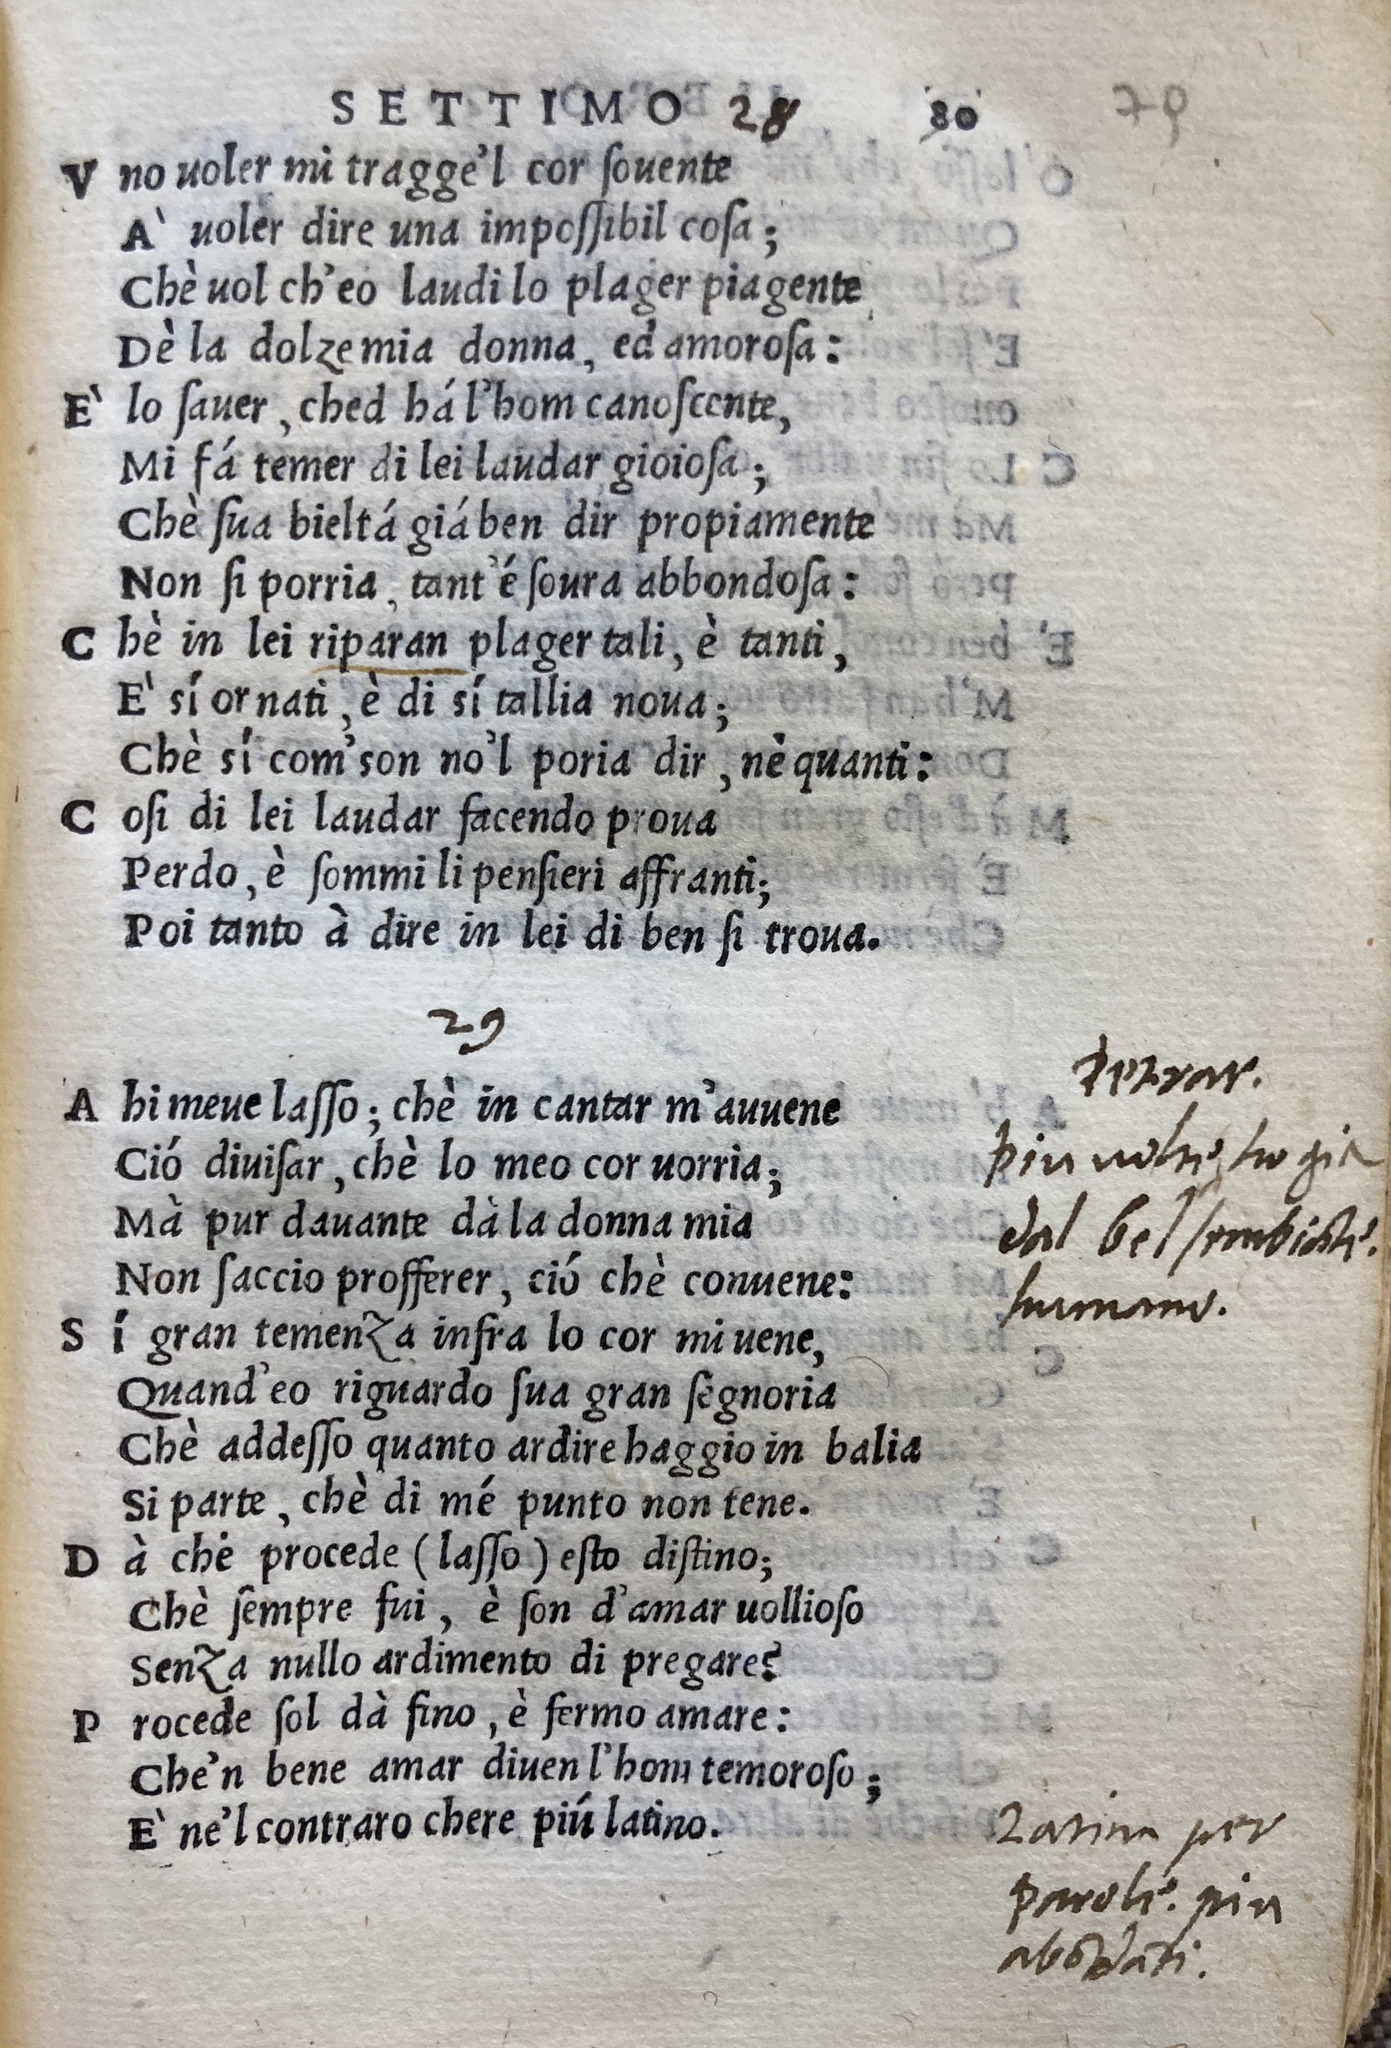 SETTIMO 28 80 79
V no uoler mi tragge'l cor souente
A' uoler dire una impossibil cosa;
Chè uol ch'eo laudi lo plager piagente
Dè la dolze mia donna, ed amorosa:
E' lo sauer, ched há l'hom canoscente,
Mi fá temer di lei laudar gioiosa;
Chè sua bieltá giá ben dir propiamente
Non si porria, tant'é soura abbondosa:
C hè in lei riparan plager tali, è tanti,
E' sí ornati, è di sí tallia noua;
Chè sí com'son no'l poria dir, nè quanti:
C osi di lei laudar facendo proua
Perdo, è sommi li pensieri affranti;
Poi tanto à dire in lei di ben si troua.
29
A hi meue lasso; chè in cantar m'auuene
Ció diuisar, chè lo meo cor uorria;
Mà pur dauante dà la donna mia
Non saccio profferer, ció chè conuene:
S í gran temenza infra lo cor mi uene,
Quand'eo riguardo sua gran segnoria
Chè addesso quanto ardire haggio in balia
Si parte, chè di mé punto non tene.
D à chè procede (lasso) esto distino;
Chè sempre fui, è son d'amar uollioso
Senza nullo ardimento di pregare?
P rocede sol dà fino, è fermo amare:
Che'n bene amar diuen l'hom temoroso;
E' ne'l contraro chere piú latino.
Petrar.
piu uolte, ho gia
dal bel sembiãte.
humano.
Latino per
parole. piu
abõdãti.